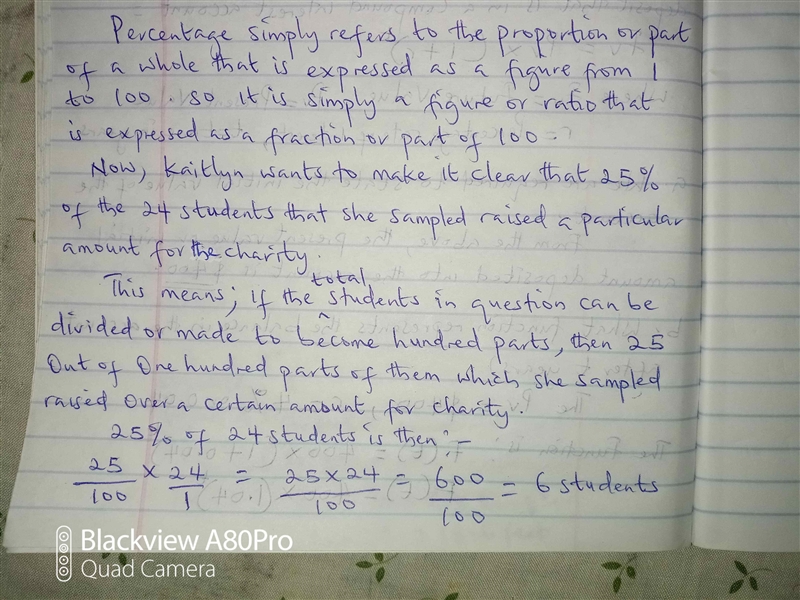 Percentage simply refers to the proportion or part
of a whole that is expressed as a figure from 1
to 100. so it is simply a figure or ratio that
is expressed as a fraction or part of 100.
Now, Kaitlyn wants to make it clear that 25%
of the 24 students that she sampled raised a particular
amount for the charity.
This means; if the total students in question can be
divided or made to become hundred parts, then 25
Out of One hundred parts of them which she sampled
raised over a certain amount, for charity.
25% of 24 students is then:-
25/100 × 24/1 = 25×24/100 = 600/100 = 6 students
Blackview A80Pro
Quad Camera